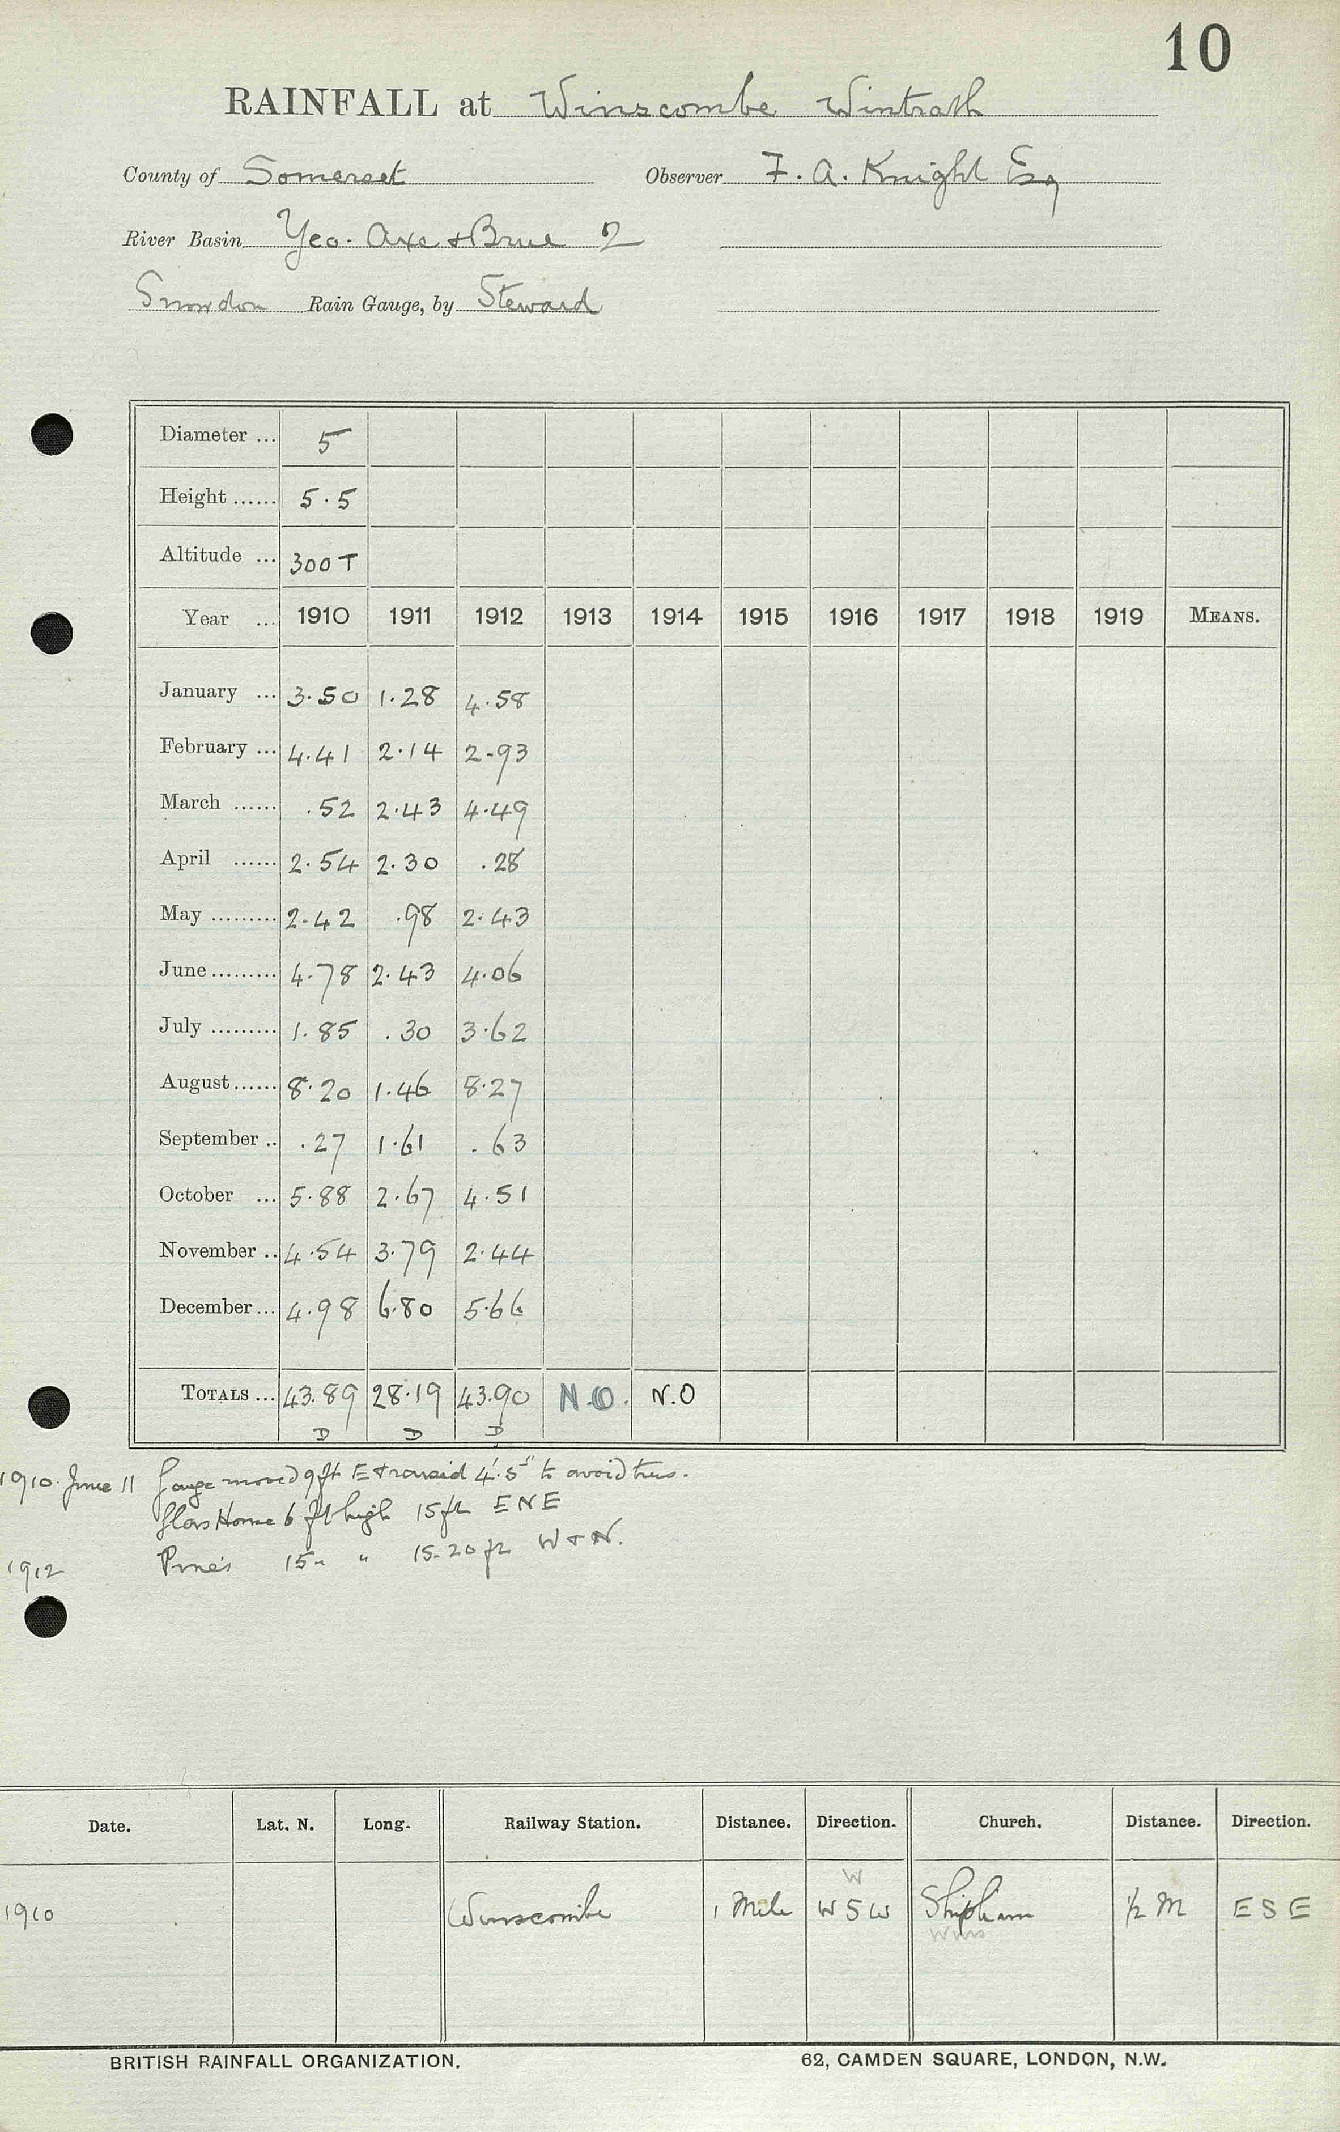 10
RAINFALL at Winscombe Wintrath
County of Somerset Observer F. A. Knight Esq
River Basin Yeo. Axe & Brue 2
Snowdon Rain Gauge, by Steward
Diameter ... 5
Height ...... 5.5
Altitude ... 300 T
Year ... 1910 1911 1912 1913 1914 1915 1916 1917 1918 1919 MEANS.
January ... 3.50 1.28 4.58
February ... 4.41 2.14 2.93
March ...... .52 2.43 4.49
April ...... 2.54 2.30 .28
May ......... 2.42 .98 2.43
June ......... 4.78 2.43 4.06
July ......... 1.85 .30 3.62
August ...... 8.20 1.46 8.27
September .. .27 1.61 .63
October ... 5.88 2.67 4.51
November .. 4.54 3.79 2.44
December ... 4.98 6.80 5.66
TOTALS ... 43.89 28.19 43.90 N.O. N.O
D D D
1910. June 11 Gauge moved 9ft E & raised 4'.5" to avoid trees.
Glass House 6 ft high 15 ft ENE
1912 Pines 15 " " 15-20 ft W & N.
Date. Lat. N. Long. Railway Station. Distance. Direction. Church. Distance. Direction.
W
1910 Winscombe 1 Mile WSW Shipham ½ M ESE
Wins
BRITISH RAINFALL ORGANIZATION. 62, CAMDEN SQUARE, LONDON, N.W.